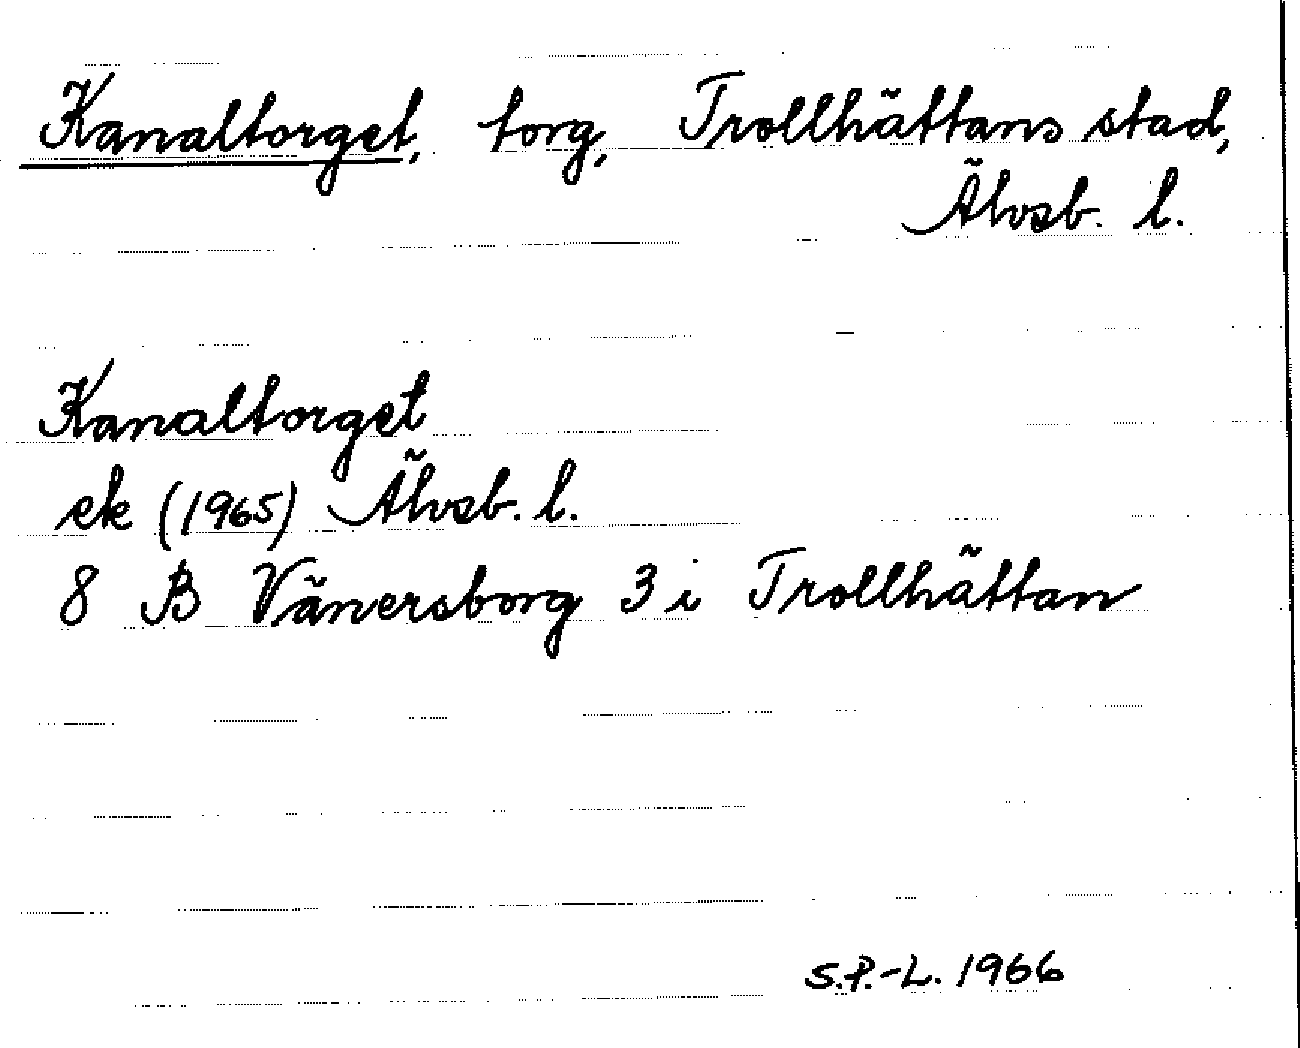 Kanaltorget, torg, Trollhättans stad,
Älvsb. l.
Kanaltorget
ek (1965) Älvsb. l.
8 B Vänersborg 3 i Trollhättan
S.P.-L. 1966